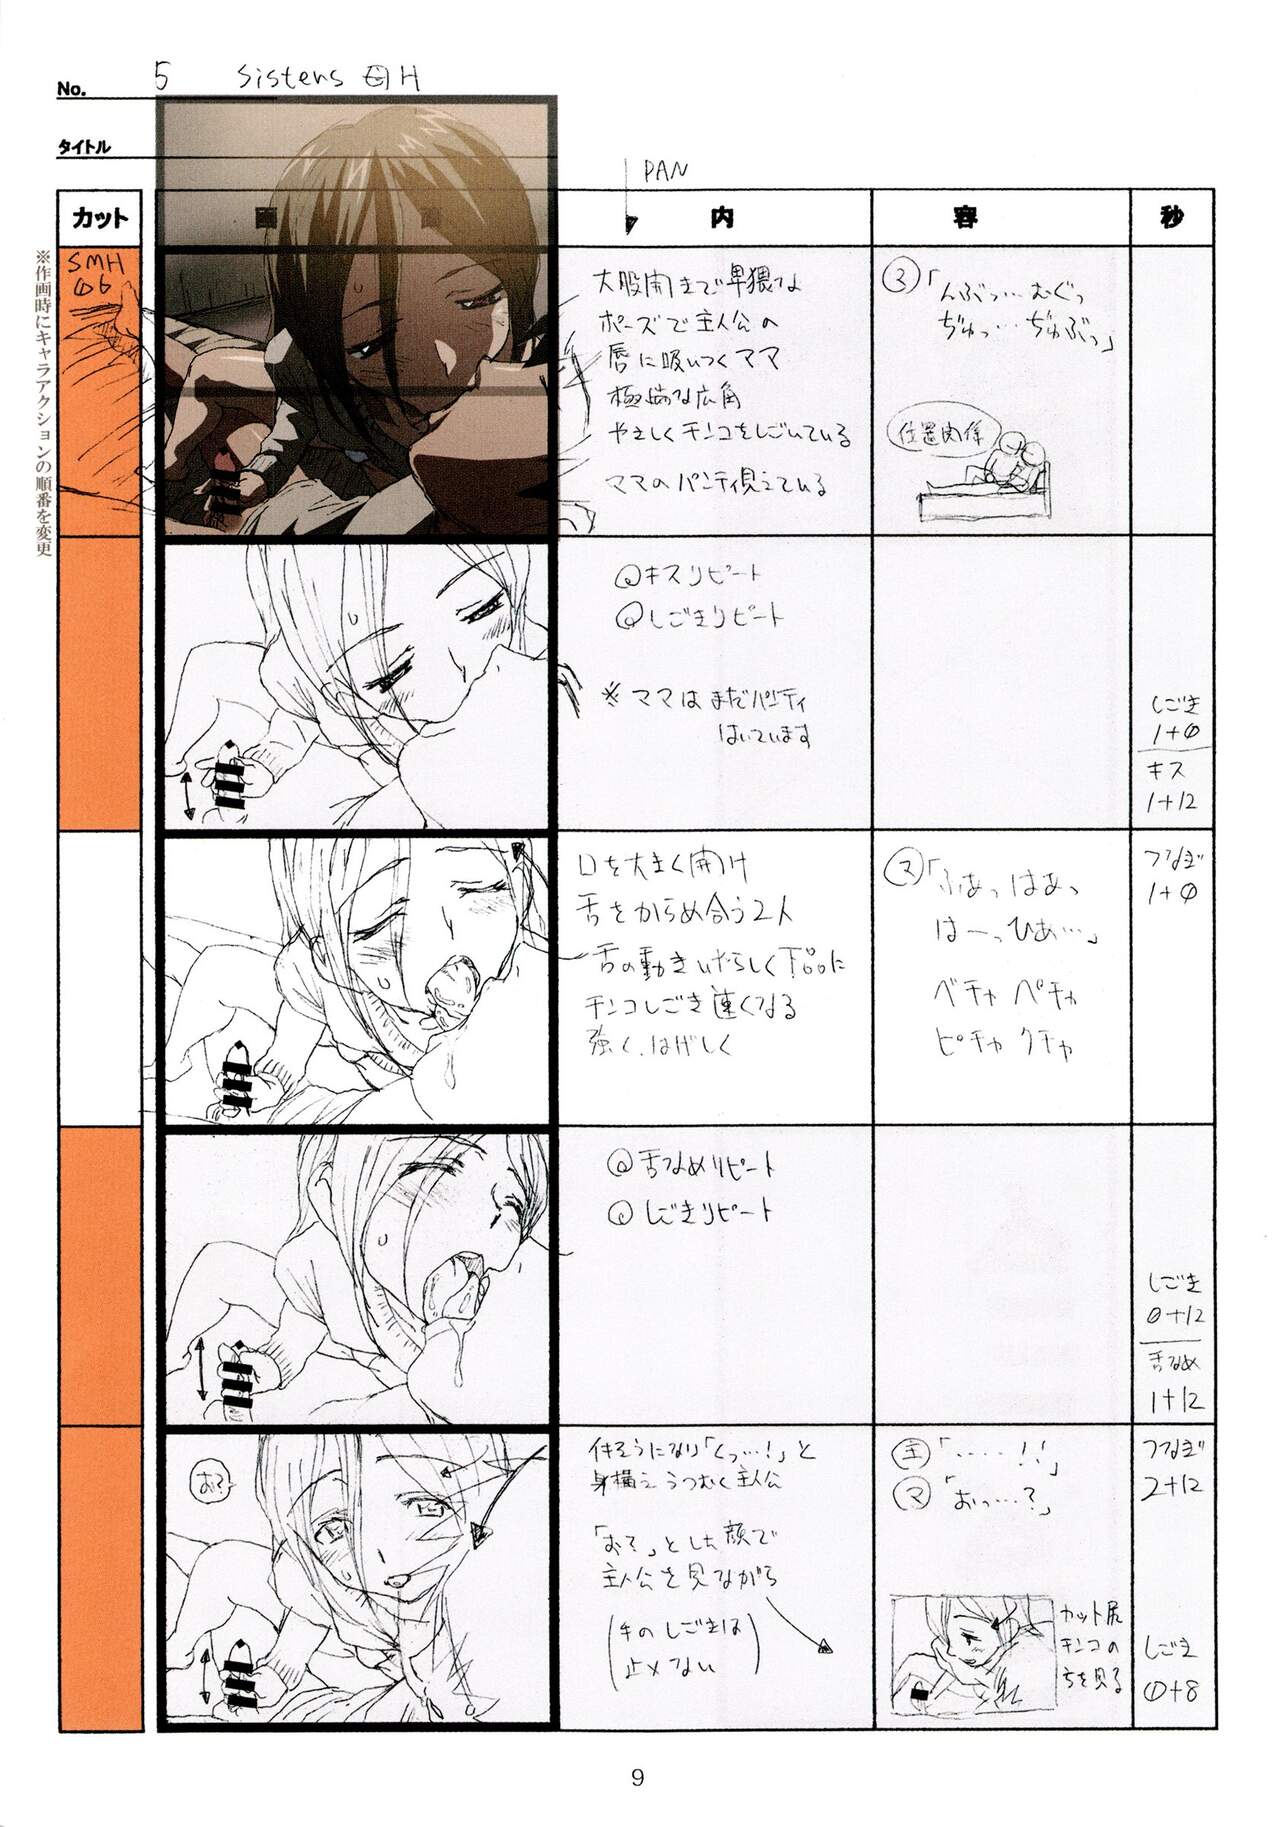 No. 5 Sisters 母H
タイトル
PAN
カット
画
内
容
秒
※作画時にキャラアクションの順番を変更
SMH
06
大股開きで卑猥な
ポーズで主人公の
唇に吸いつくママ
極端な広角
やさしくチンコをしごいている
ママのパンティ見えている
マ「んぶっ…むぐっ
ぢゅっ…ぢゅぶっ」
位置関係
キスリピート
しごきリピート
※ママはまだパンティ
はいています
しごき
1+0
キス
1+12
口を大きく開け
舌をからめ合う2人
舌の動きいやらしく
チンコしごき速くなる
強く、はげしく
マ「ふあっはあっ
はーっひあ…」
ベチャ ペチャ
ピチャ クチャ
つなぎ
1+0
舌なめリピート
しごきリピート
しごき
0+12
舌なめ
1+12
おっ?
「くっ…!」と
身構えうつむく主人公
とした顔で
主人公を見ながら
(手のしごきは
止めない)
主「……!!」
マ「おっ…?」
カット尻
チンコの
方を見る
つなぎ
2+12
しごき
0+8
9